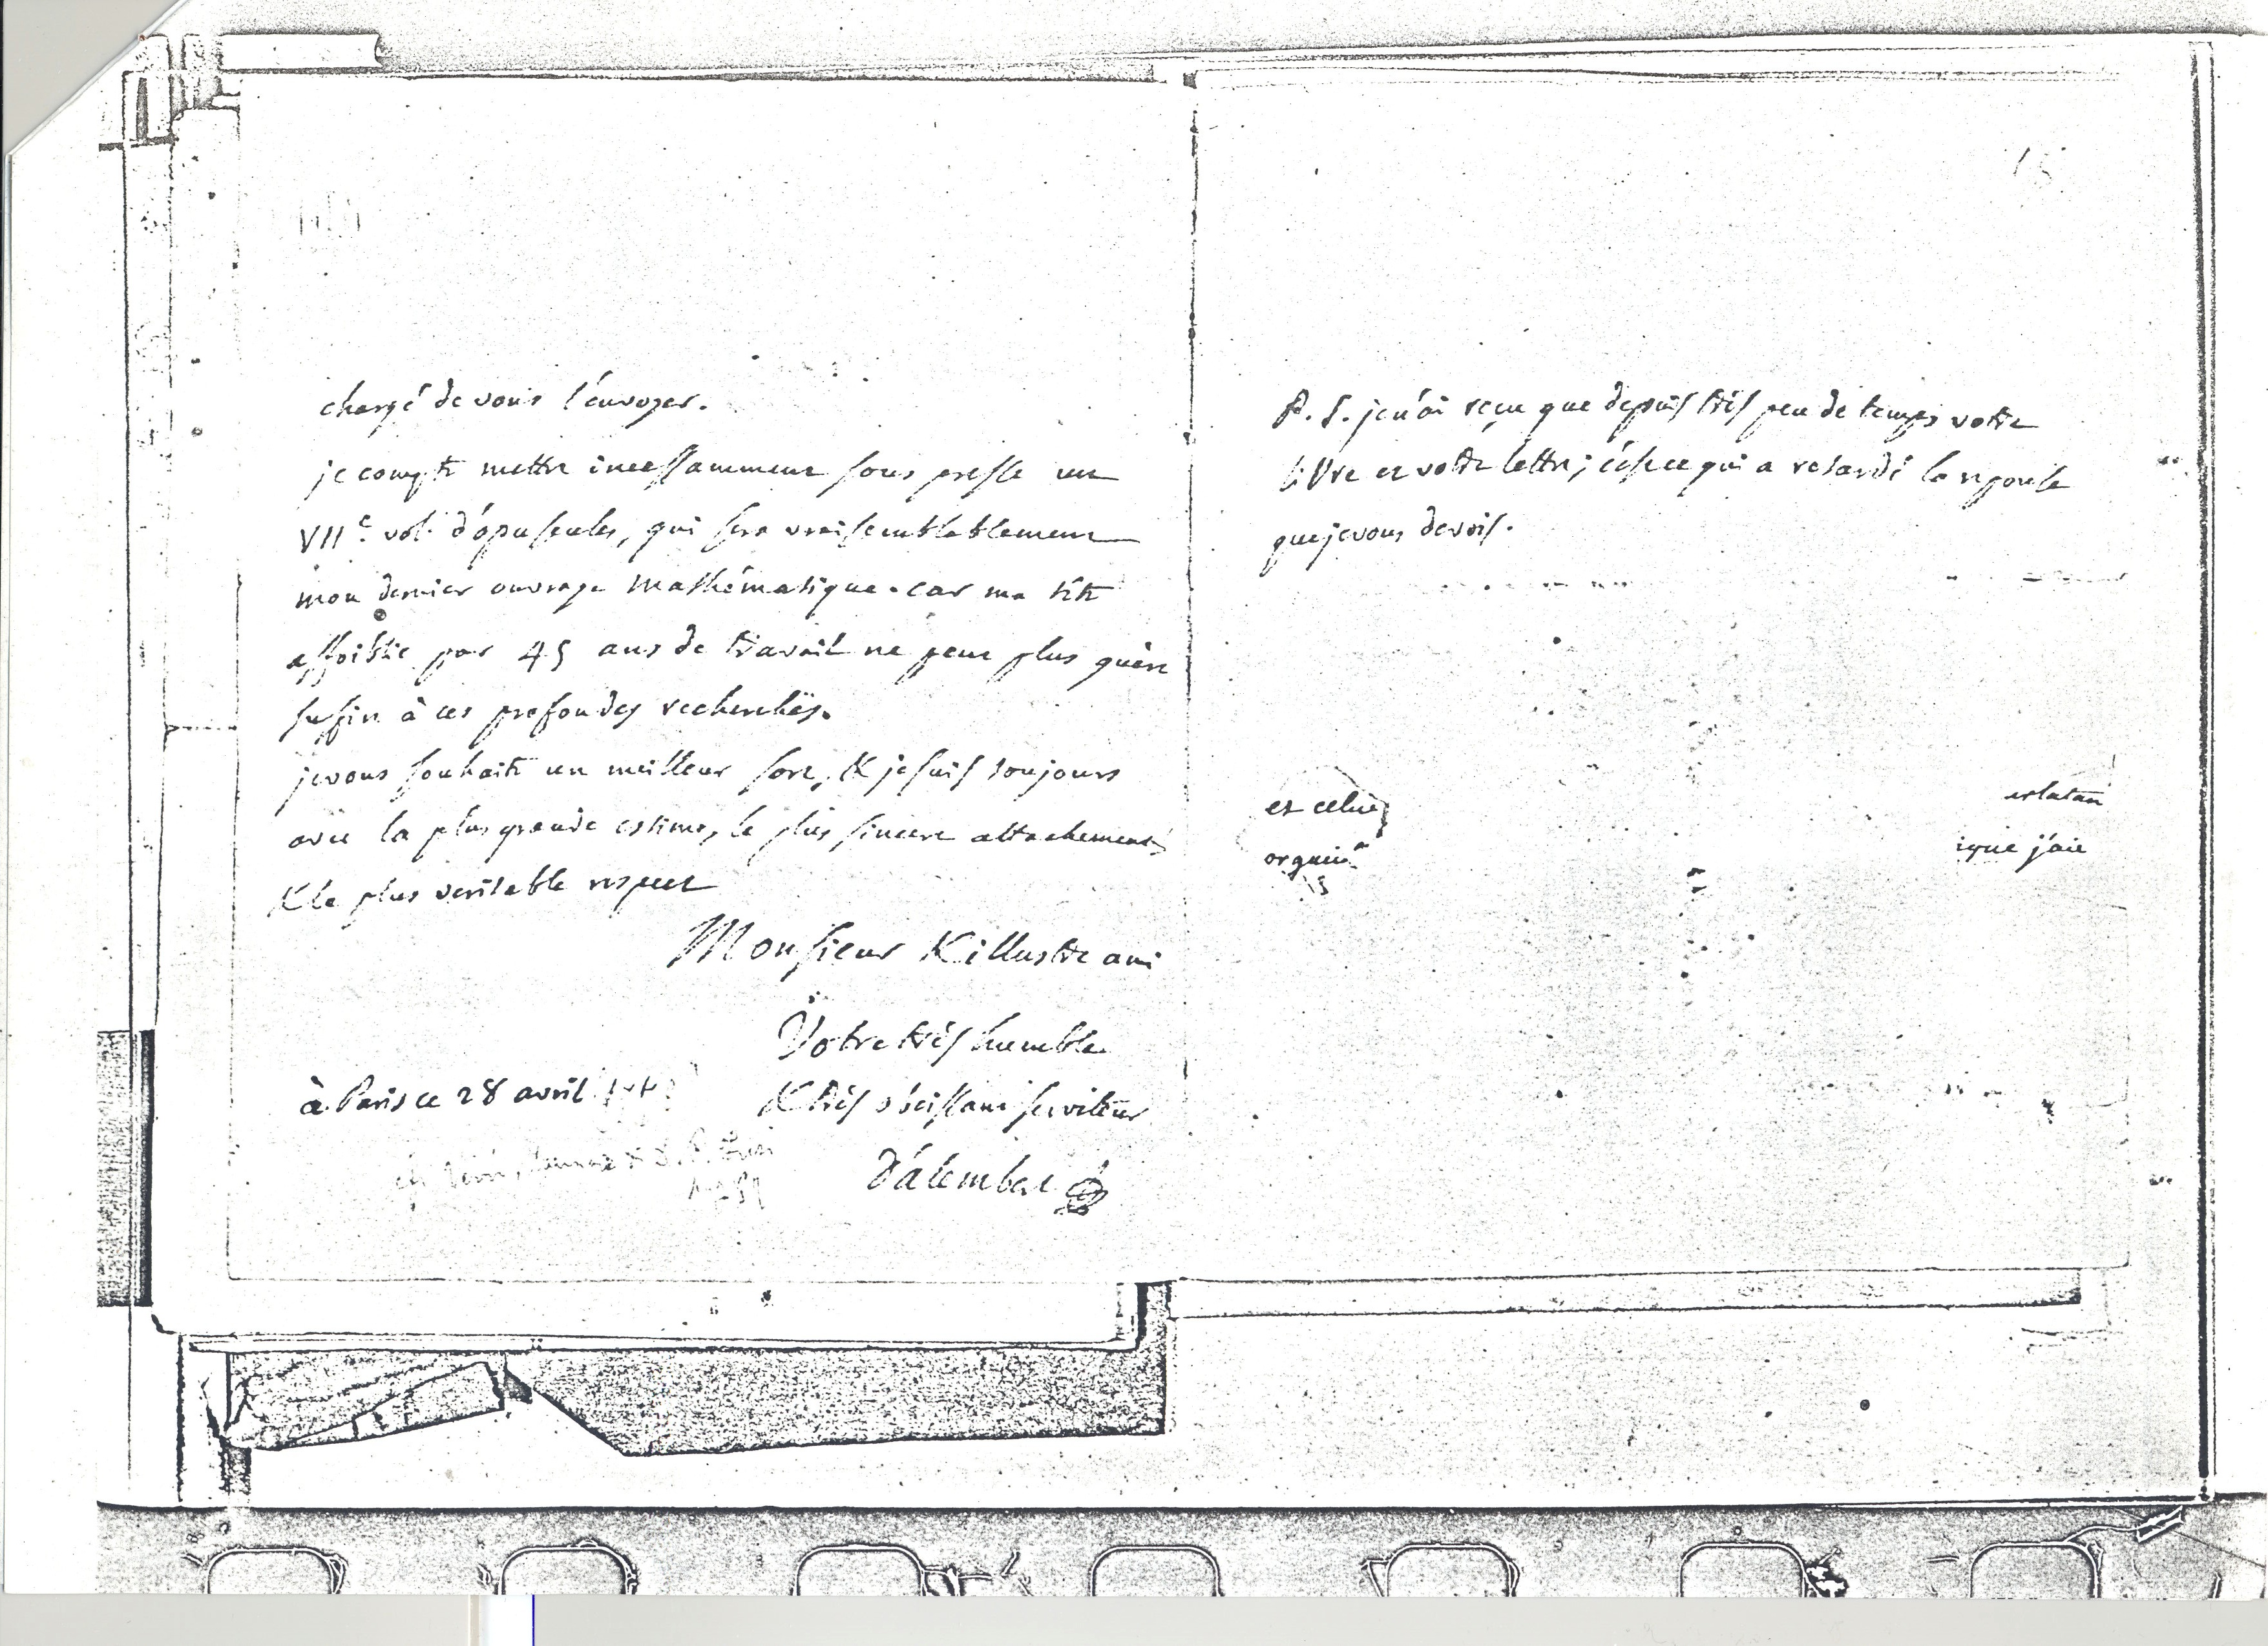 chargé de vous l'envoyer.
je compte mettre incessamment sous presse un
VIIe vol. d'opuscules, qui sera vraisemblablement
mon dernier ouvrage mathématique. car ma tête
affoiblie par 45 ans de travail ne peut plus guère
suffire à ces profondes recherches.
je vous souhaite un meilleur sort, & je suis toujours
avec la plus grande estime, le plus sincere attachement
& le plus veritable respect
Monsieur & illustre ami
Votre très humble
& très obéissant serviteur
à Paris ce 28 avril
D'alembert
15
P.S. je n'ai reçu que depuis très peu de temps votre
livre et votre lettre; c'est ce qui a retardé la reponse
que je vous devois.
et celui
j'aie